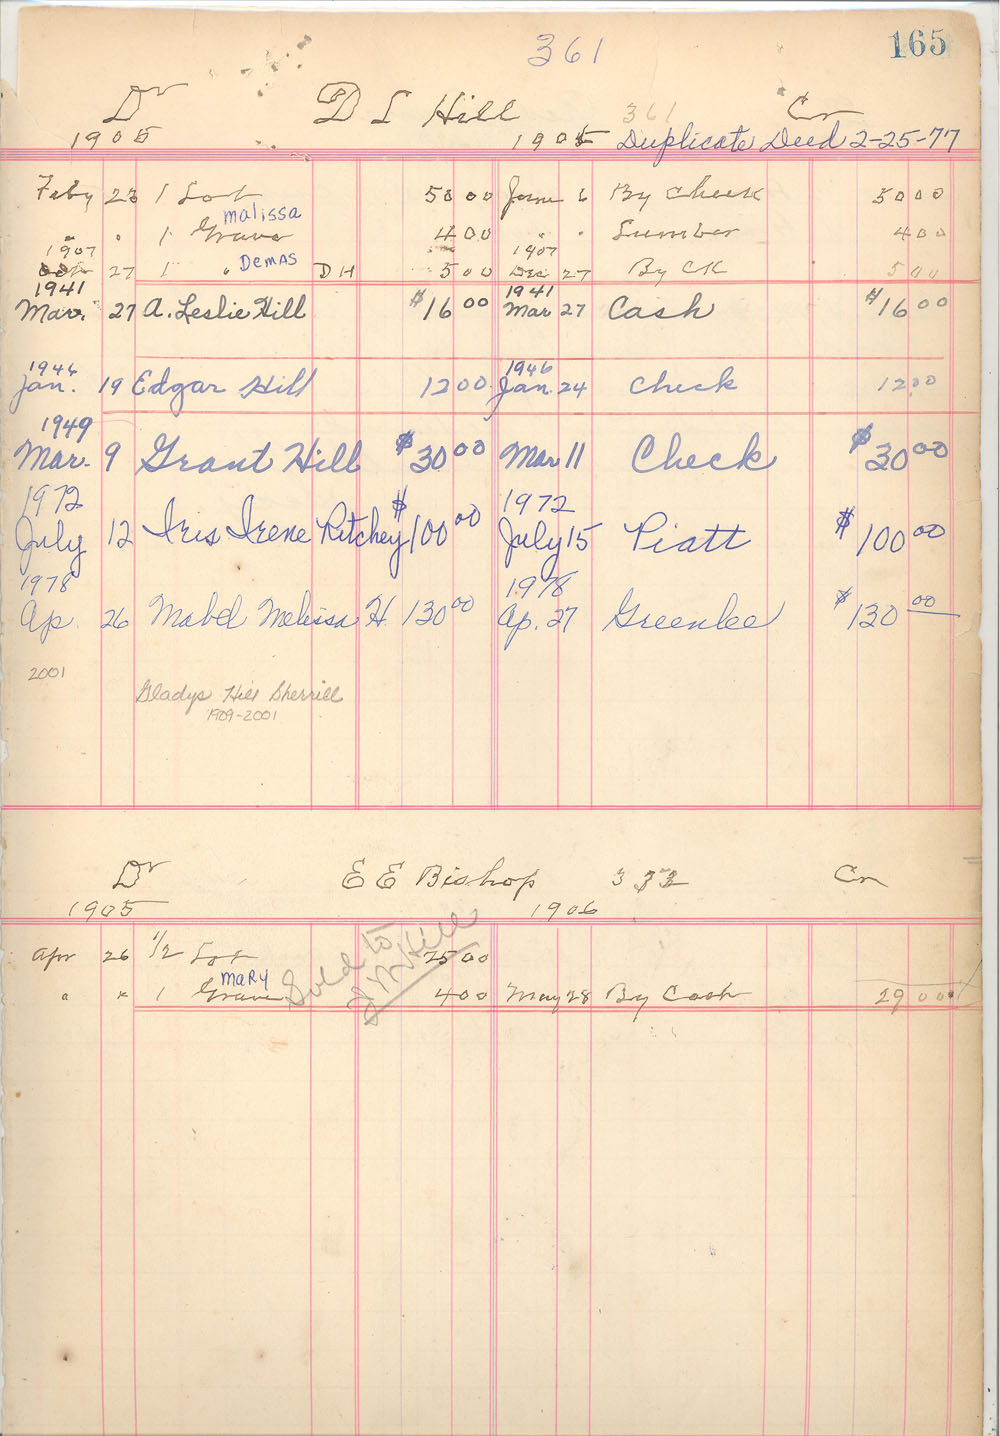 361 165
Dr D L Hill 361 Cr
1905 1905 Duplicate Deed 2-25-77
Feby 23 1 Lot 50 00 June 6 By Check 50 00
Malissa
" " 1 Grave 4 00 " " Lumber 4 00
1907 1907
27 1 " Demas D H 5 00 Dec 27 By CK 5 00
1941 1941
Mar. 27 A. Leslie Hill $16 00 Mar 27 Cash $16 00
1946 1946
Jan. 19 Edgar Hill 12 00 Jan. 24 Check 12 00
1949
Mar. 9 Grant Hill $30 00 Mar 11 Check $30 00
1972 1972
July 12 Iris Irene Ritchey $100 00 July 15 Piatt $100 00
1978 1978
Ap. 26 Mabel Melissa H. 130 00 Ap. 27 Greenlee $130 00
2001
Gladys Hill Sherrill
1909-2001
Dr E E Bishop 332 Cr
1905 1906
Apr 26 1/2 Lot 25 00
Mary
" " 1 Grave 4 00 May 28 By Cash 29 00
Sold to
Hill